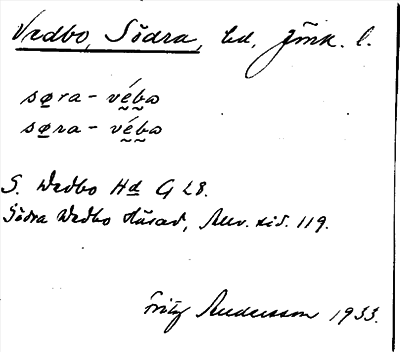 Vedbo, Södra, hd, Jönk. l.
sø̱ra - vé̱b̰ω
sø̱ra - vé̱b̰ω
S. Wedbo Hd G 28.
Södra Wedbo Härad, 119.
Fritz Andersson 1933.